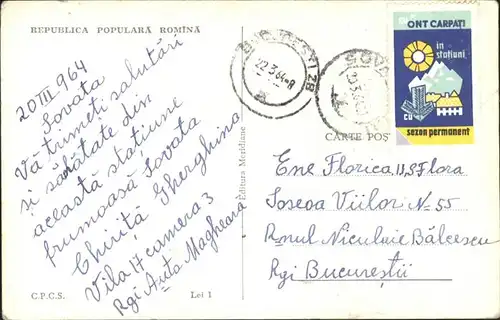 REPUBLICA POPULARA ROMÎNA
20 III 964
Sovata
Vă trimeți salutări
și sădătate din
această stațiune
frumoasă Sovata
Chiriță Gherghina
Vila 17 camera 3
Rgi Auto Magheara
C.P.C.S.
Lei 1
Editura Meridiane
BUCUREȘTI 28
22.3.64-8
SOVA
ONT CARPAȚI
în
stațiuni
cu
sezon permanent
CARTE POȘ
Ene Florica I.I.S Flora
Șoseoa Viilor No 55
R-nul Niculaie Bălcescu
Rgi Bucureștii